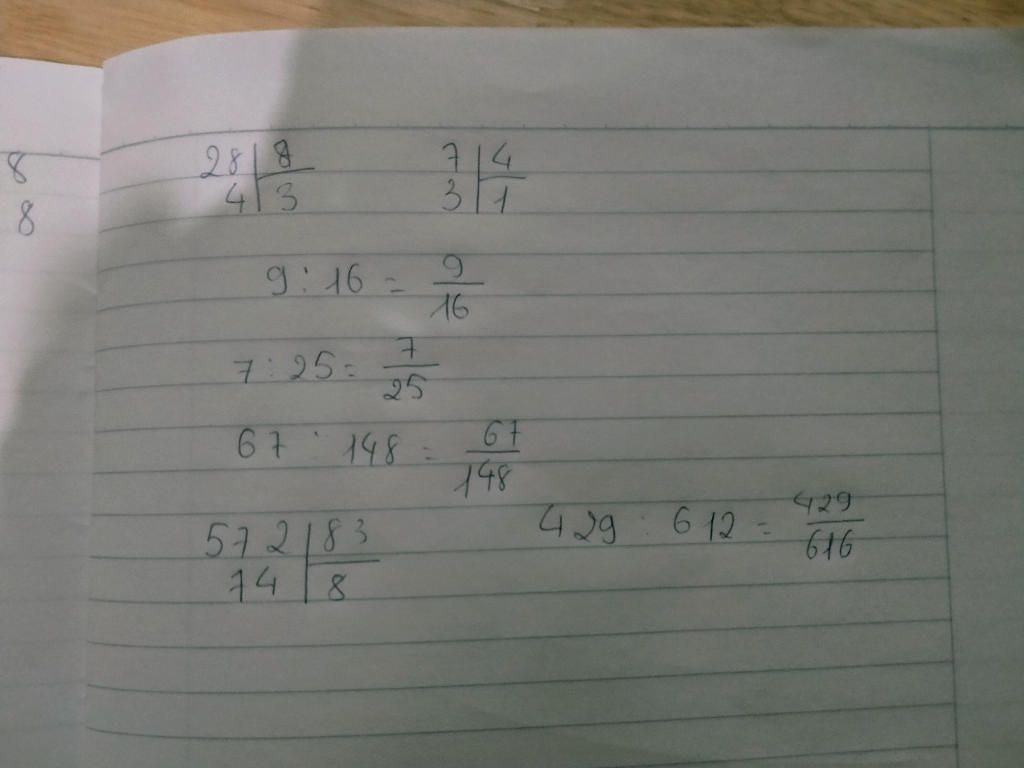 8
8
28 | 8    7 | 4
4 | 3    3 | 1
9 : 16 = 9/16
7 : 25 = 7/25
67 : 148 = 67/148
572 | 83    429 : 612 = 429/616
74 | 8